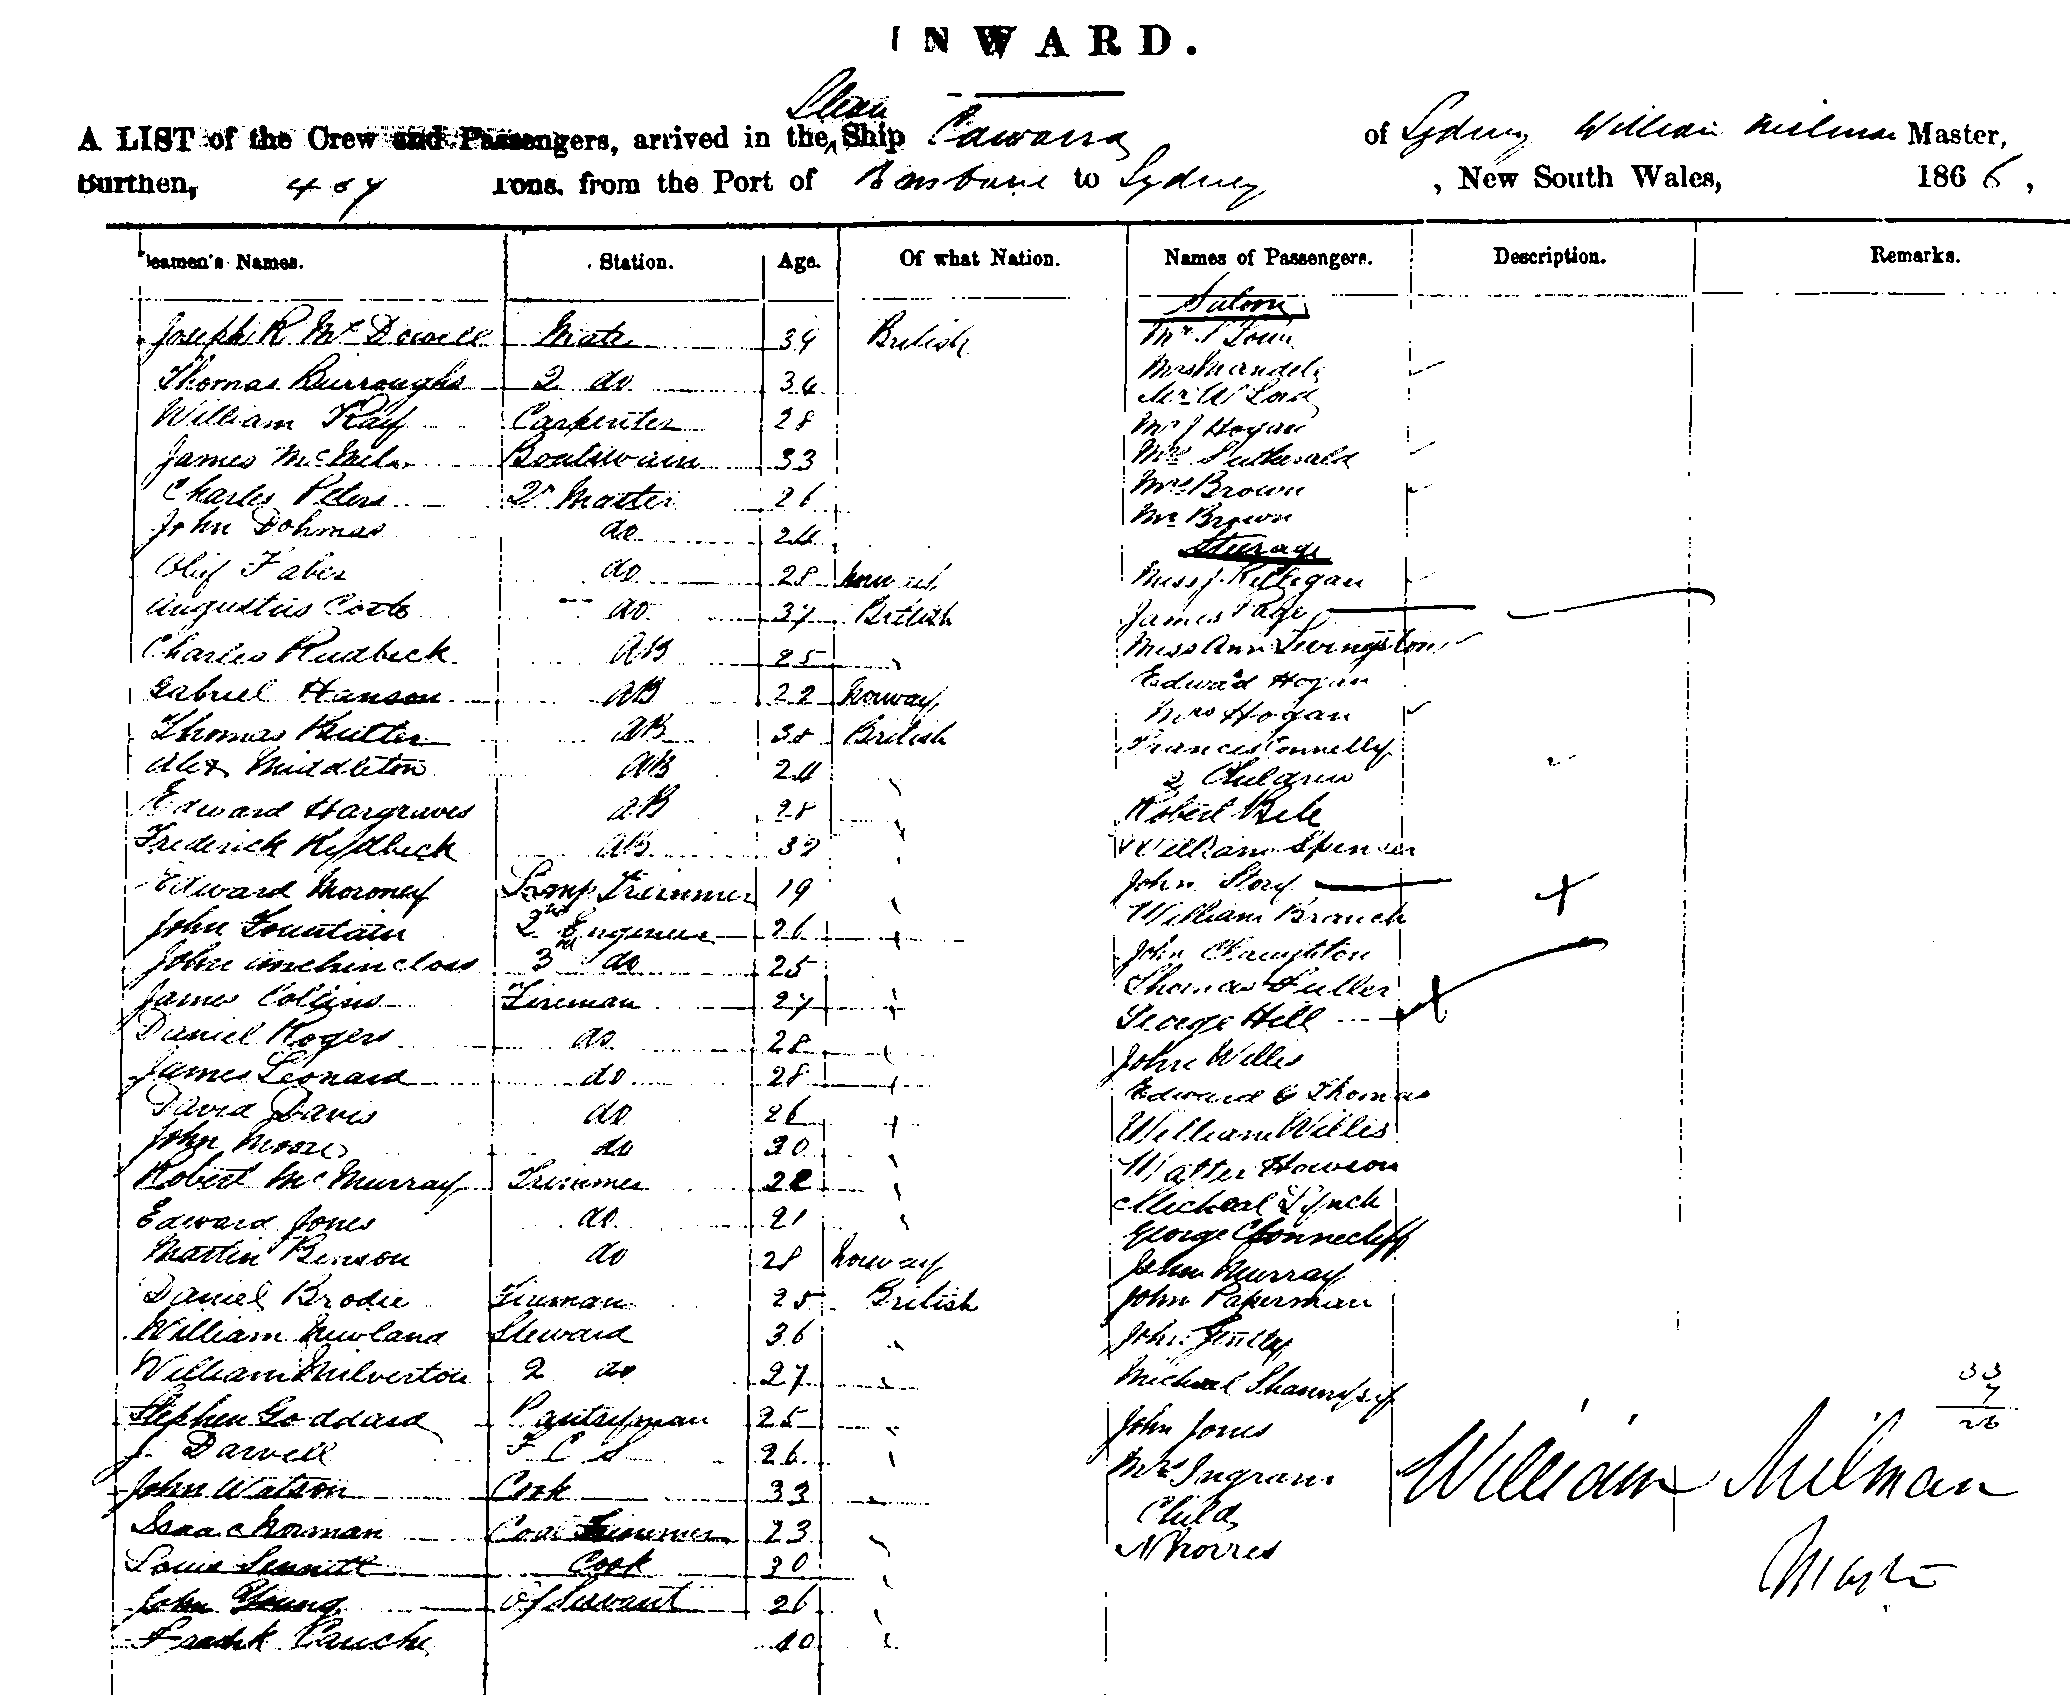 INWARD.
Steam
A LIST of the Crew and Passengers, arrived in the ^ Ship Cawarra of Sydney William Milman Master,
Burthen, 407 Tons, from the Port of Brisbane to Sydney, New South Wales, 1866,
Seamen's Names. Station. Age. Of what Nation. Names of Passengers. Description. Remarks.
Saloon
Joseph R McDowell Mate 34 British Mr
Thomas Burroughs 2 do 34 Mrs Mandel
William Kay Carpenter 28 Mr W Lord
James McNeil Boatswain 33 Mr J Hogan
Mrs Sutherald
Charles Peters Qr Master 26 Mrs Brown
John Dohmas do 24 Mr Brown
Steerage
Olif Faber do 28 Miss J. Killigan
Augustus Coote do 37 British James Page
Charles Rudbeck AB 25 " Miss Ann Livingston
Gabriel Hanson AB 22 Norway Edward Hogan
Mrs Hogan
Thomas Butler AB 30 British Francis Connelly
Alex Middleton AB 24 " 2 Children
Edward Hargraves AB 28 " Robert Bele
Frederick Rydbeck AB 32 " William Spenser
Edward Moroney Lamp Trimmer 19 " John Story
John Fountain 2nd Engineer 26 " William Branch
John 3rd do 25 " John Claughton
James Collins Fireman 27 " Thomas Fuller
George Hill
Daniel Rogers do 28 " John Willis
James Leonard do 28 " Edward G Thomas
David Davis do 26 " William Willis
John Moore do 30 " Walter Howson
Robert McMurray Trimmer 22 " Michael Lynch
Edward Jones do 21 " George
Martin Benson do 28 Norway John Murray
Daniel Brodie Fireman 25 British John Paperman
William Newland Steward 36 " John
William Milverton 2 do 27 " Michael
33
7
26
Stephen Goddard Pantryman 25 " John Jones
J. Darvell F C S 26 " Mrs Ingram
John Watson Cook 33 " Child
William Milman
Isaac Norman Coal Trimmer 23 " N Norres
Louis Sennett Cook 30 "
Master
John Young Of Servant 26 "
Frank Pauche 40 "